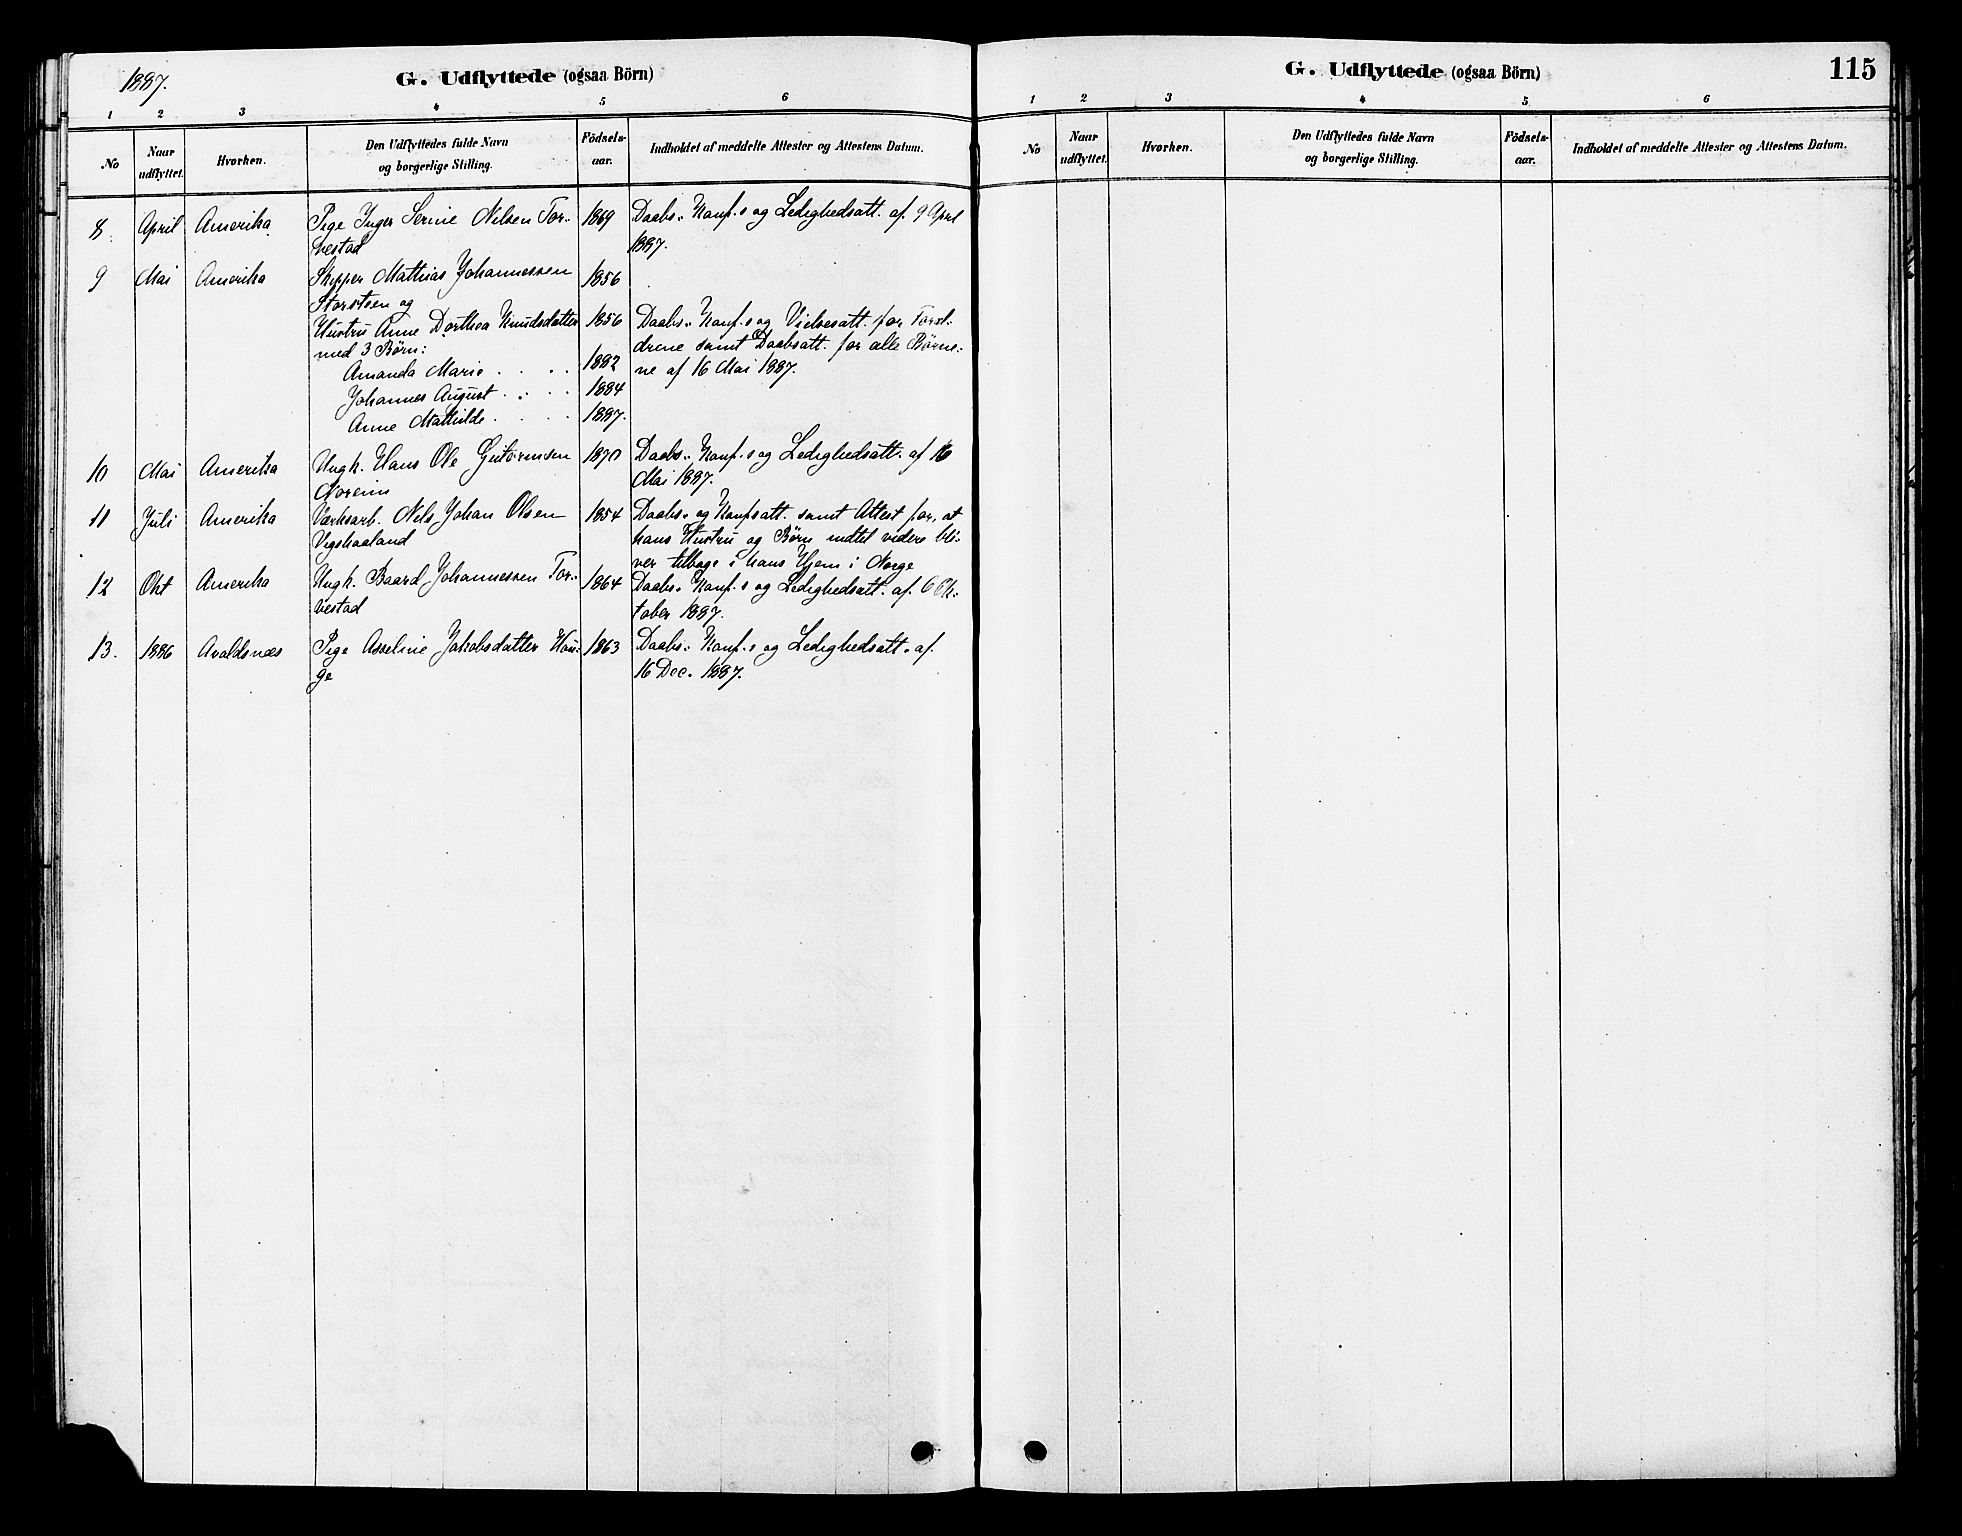 1887.
G. Udflyttede (ogsaa Börn)
1 2 3 4 5 6
No
Naar udflyttet.
Hvorhen.
Den Udflyttedes fulde Navn og borgerlige Stilling.
Födsels-aar.
Indholdet af meddelte Attester og Attestens Datum.
8 April Amerika Pige Inger Serine Nilsen Tor- 1869 Daabs- Konf.s og Ledighedsatt. af 9 April
vestad 1887.
9 Mai Amerika Skipper Mathias Johannessen 1856
Storsteen og
Hustru Anne Dorthea Knudsdatter 1856 Daabs- Konf.s og Vielsesatt. for Foræl-
med 3 Børn: drene samt Daabsatt. for alle Børne-
Amanda Marie . . . . 1882 ne af 16 Mai 1887.
Johannes August . . . . 1884
Anne Mathilde . . . . 1887.
10 Mai Amerika Ungk. Hans Ole Gutormsen 1870 Daabs- Konf.s og Ledighedsatt. af 16
Noreim Mai 1887.
11 Juli Amerika Værksarb. Nils Johan Olsen 1854 Daabs- og Konfsatt. samt Attest for, at
Vigshaaland hans Hustru og Børn indtil videre bli-
ver tilbage i hans Hjem i Norge
12 Okt Amerika Ungk. Baard Johannessen Tor- 1864 Daabs- Konf.s og Ledighedsatt. af 6 Ok-
vestad tober 1887.
13. 1886 Avaldsnæs Pige Asseline Jakobsdatter Hau- 1863 Daabs- Konf.s og Ledighedsatt. af
ge 16 Dec. 1887.
G. Udflyttede (ogsaa Börn) 115
1 2 3 4 5 6
No
Naar udflyttet.
Hvorhen.
Den Udflyttedes fulde Navn og borgerlige Stilling.
Födsels-aar.
Indholdet af meddelte Attester og Attestens Datum.